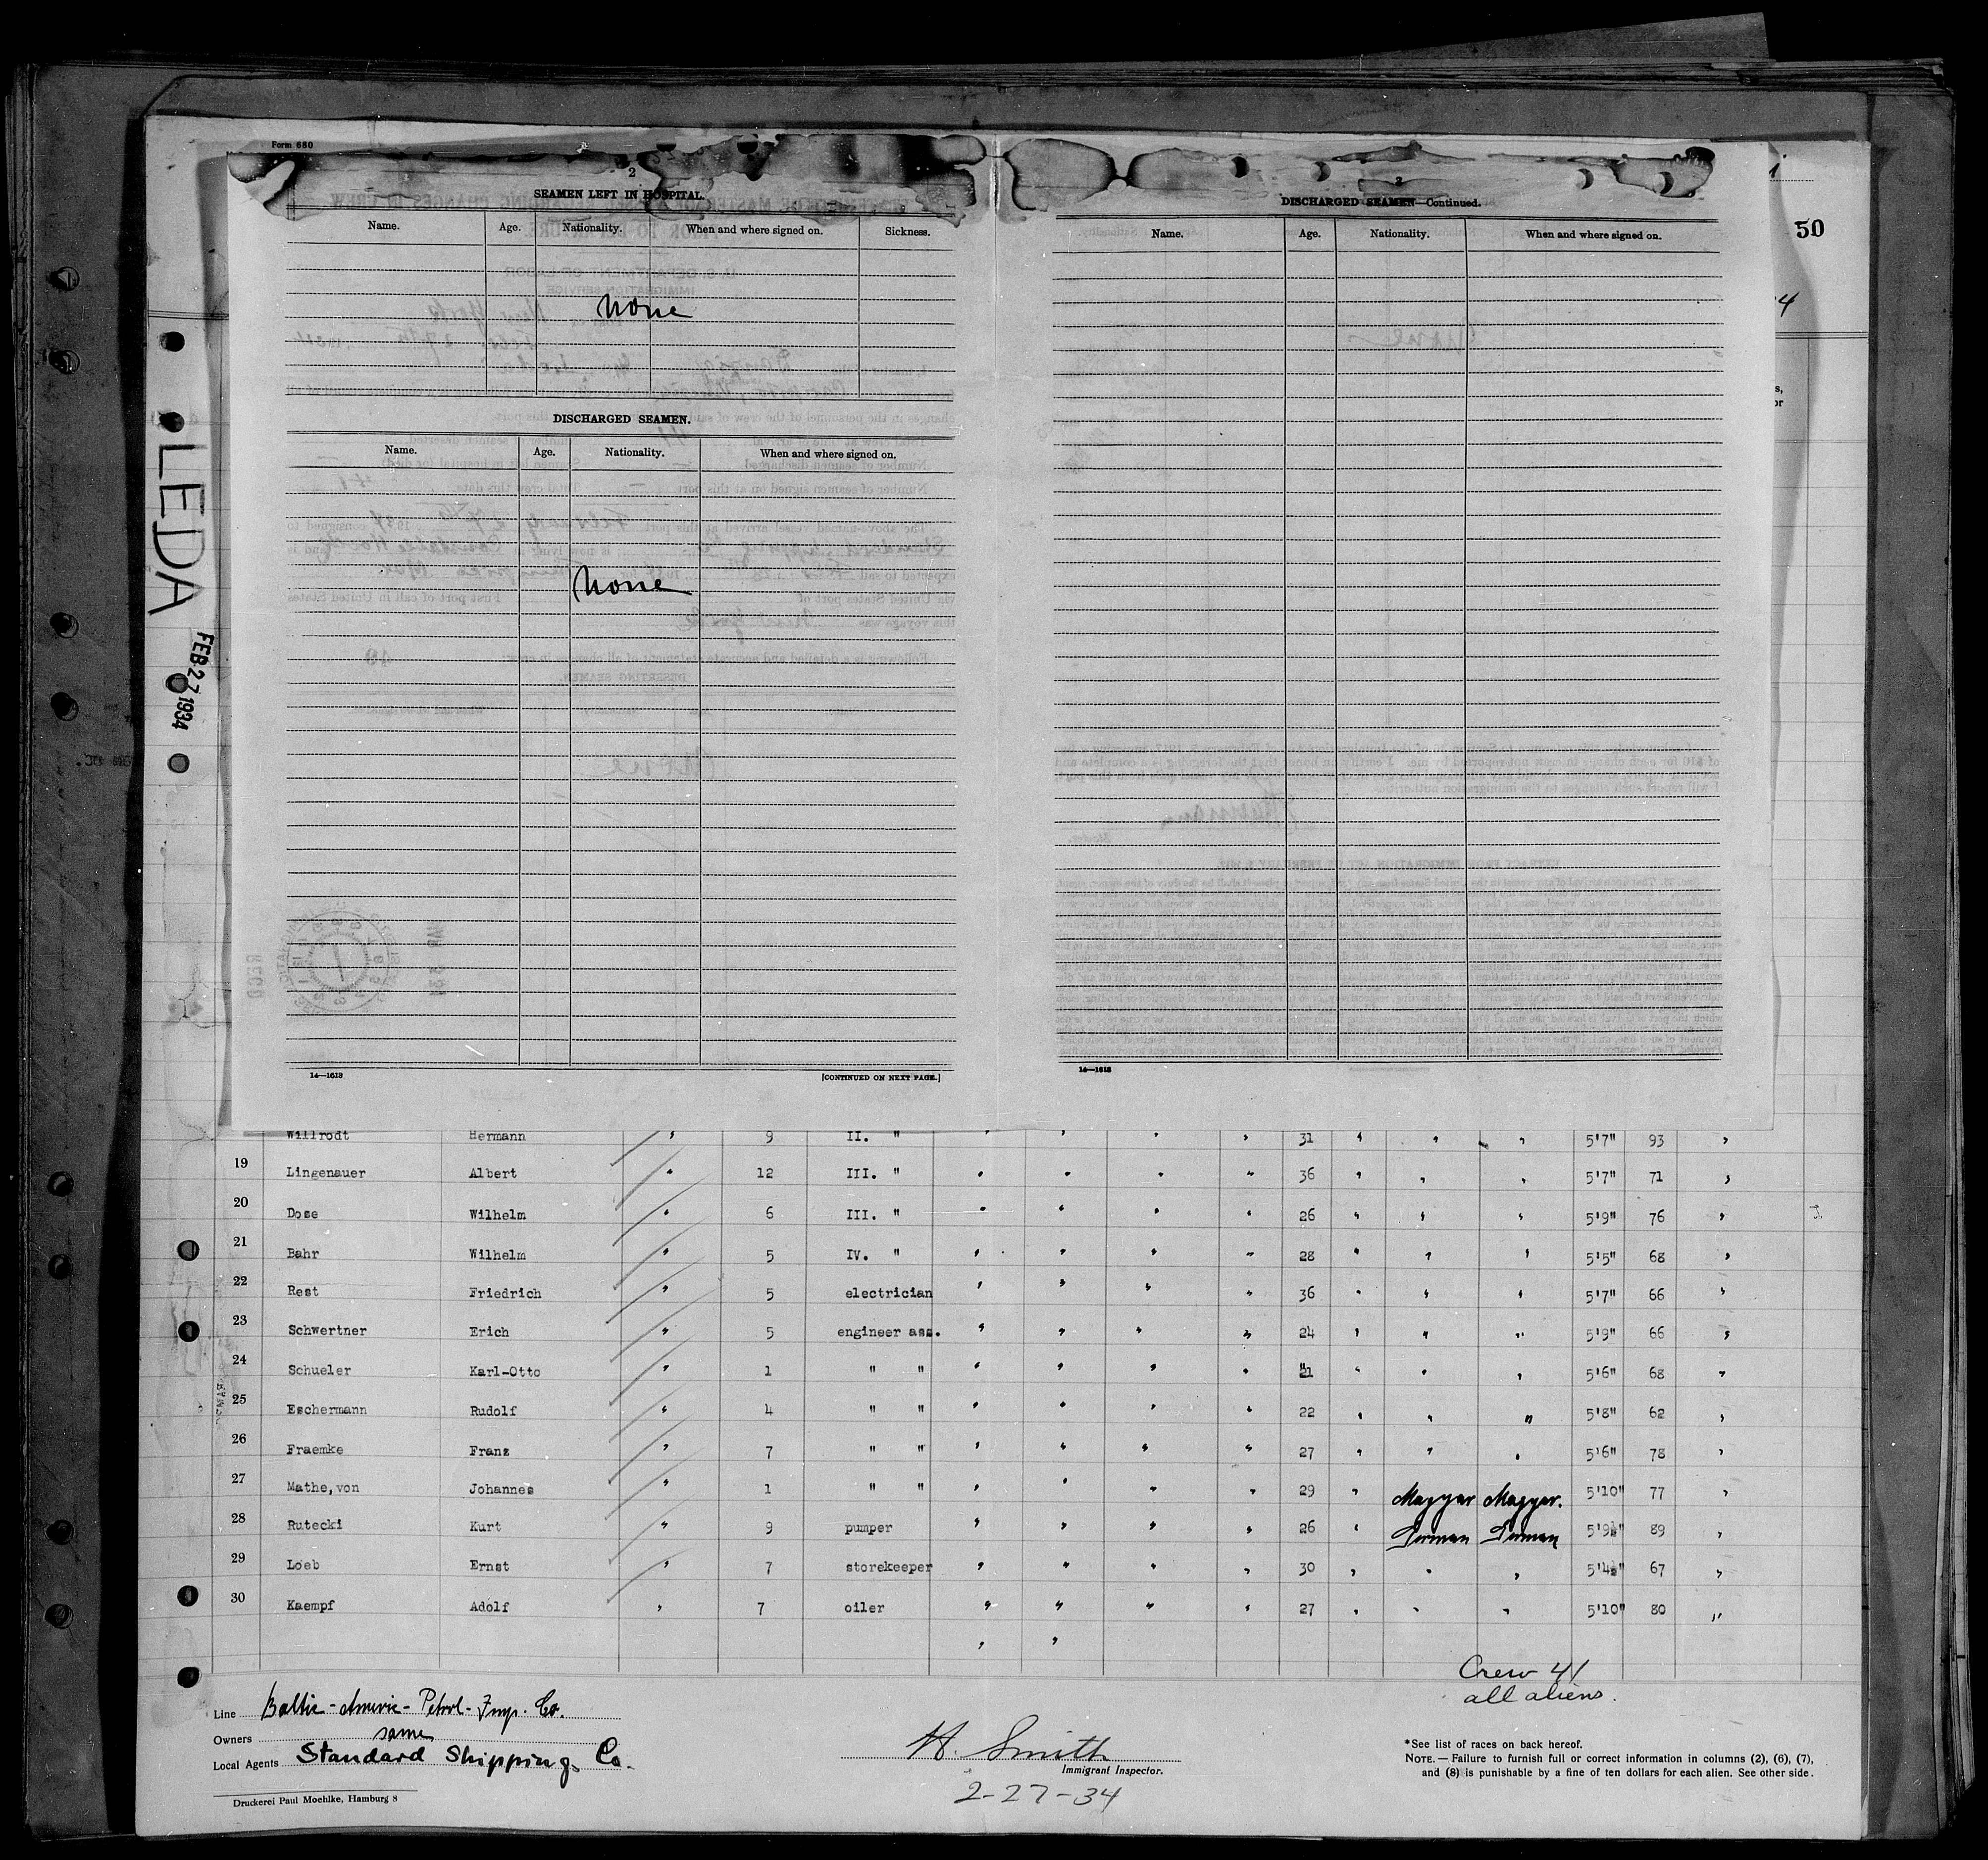 Form 680
2
SEAMEN LEFT IN HOSPITAL.
Name. Age. Nationality. When and where signed on. Sickness.
None
DISCHARGED SEAMEN.
Name. Age. Nationality. When and where signed on.
None
14—1613 [CONTINUED ON NEXT PAGE.]
3
DISCHARGED SEAMEN—Continued.
Name. Age. Nationality. When and where signed on.
14—1613
50
LEDA
FEB 27 1934
Willrodt Hermann " 9 II. " " " " " 31 " " " 5'7" 93 "
19 Lingenauer Albert " 12 III. " " " " " 36 " " " 5'7" 71 "
20 Dose Wilhelm " 6 III. " " " " " 26 " " " 5'9" 76 "
21 Bahr Wilhelm " 5 IV. " " " " " 28 " " " 5'5" 68 "
22 Rest Friedrich " 5 electrician " " " " 36 " " " 5'7" 66 "
23 Schwertner Erich " 5 engineer ass. " " " " 24 " " " 5'9" 66 "
24 Schueler Karl-Otto " 1 " " " " " " 21 " " " 5'6" 68 "
25 Eschermann Rudolf " 4 " " " " " " 22 " " " 5'8" 62 "
26 Fraemke Franz " 7 " " " " " " 27 " " " 5'6" 78 "
27 Mathe,von Johannes " 1 " " " " " 29 " Magyar Magyar. 5'10" 77 "
28 Rutecki Kurt " 9 pumper " " " " 26 " German German 5'9½" 89 "
29 Loeb Ernst " 7 storekeeper " " " " 30 " " " 5'4½" 67 "
30 Kaempf Adolf " 7 oiler " " " " 27 " " " 5'10" 80 "
" "
Crew 41
all aliens.
Line Baltic-Americ-Petrol-Imp. Co.
Owners same
Local Agents Standard Shipping Co.
Druckerei Paul Moehlke, Hamburg 8
H. Smith
Immigrant Inspector.
2-27-34
*See list of races on back hereof.
NOTE.—Failure to furnish full or correct information in columns (2), (6), (7),
and (8) is punishable by a fine of ten dollars for each alien. See other side.